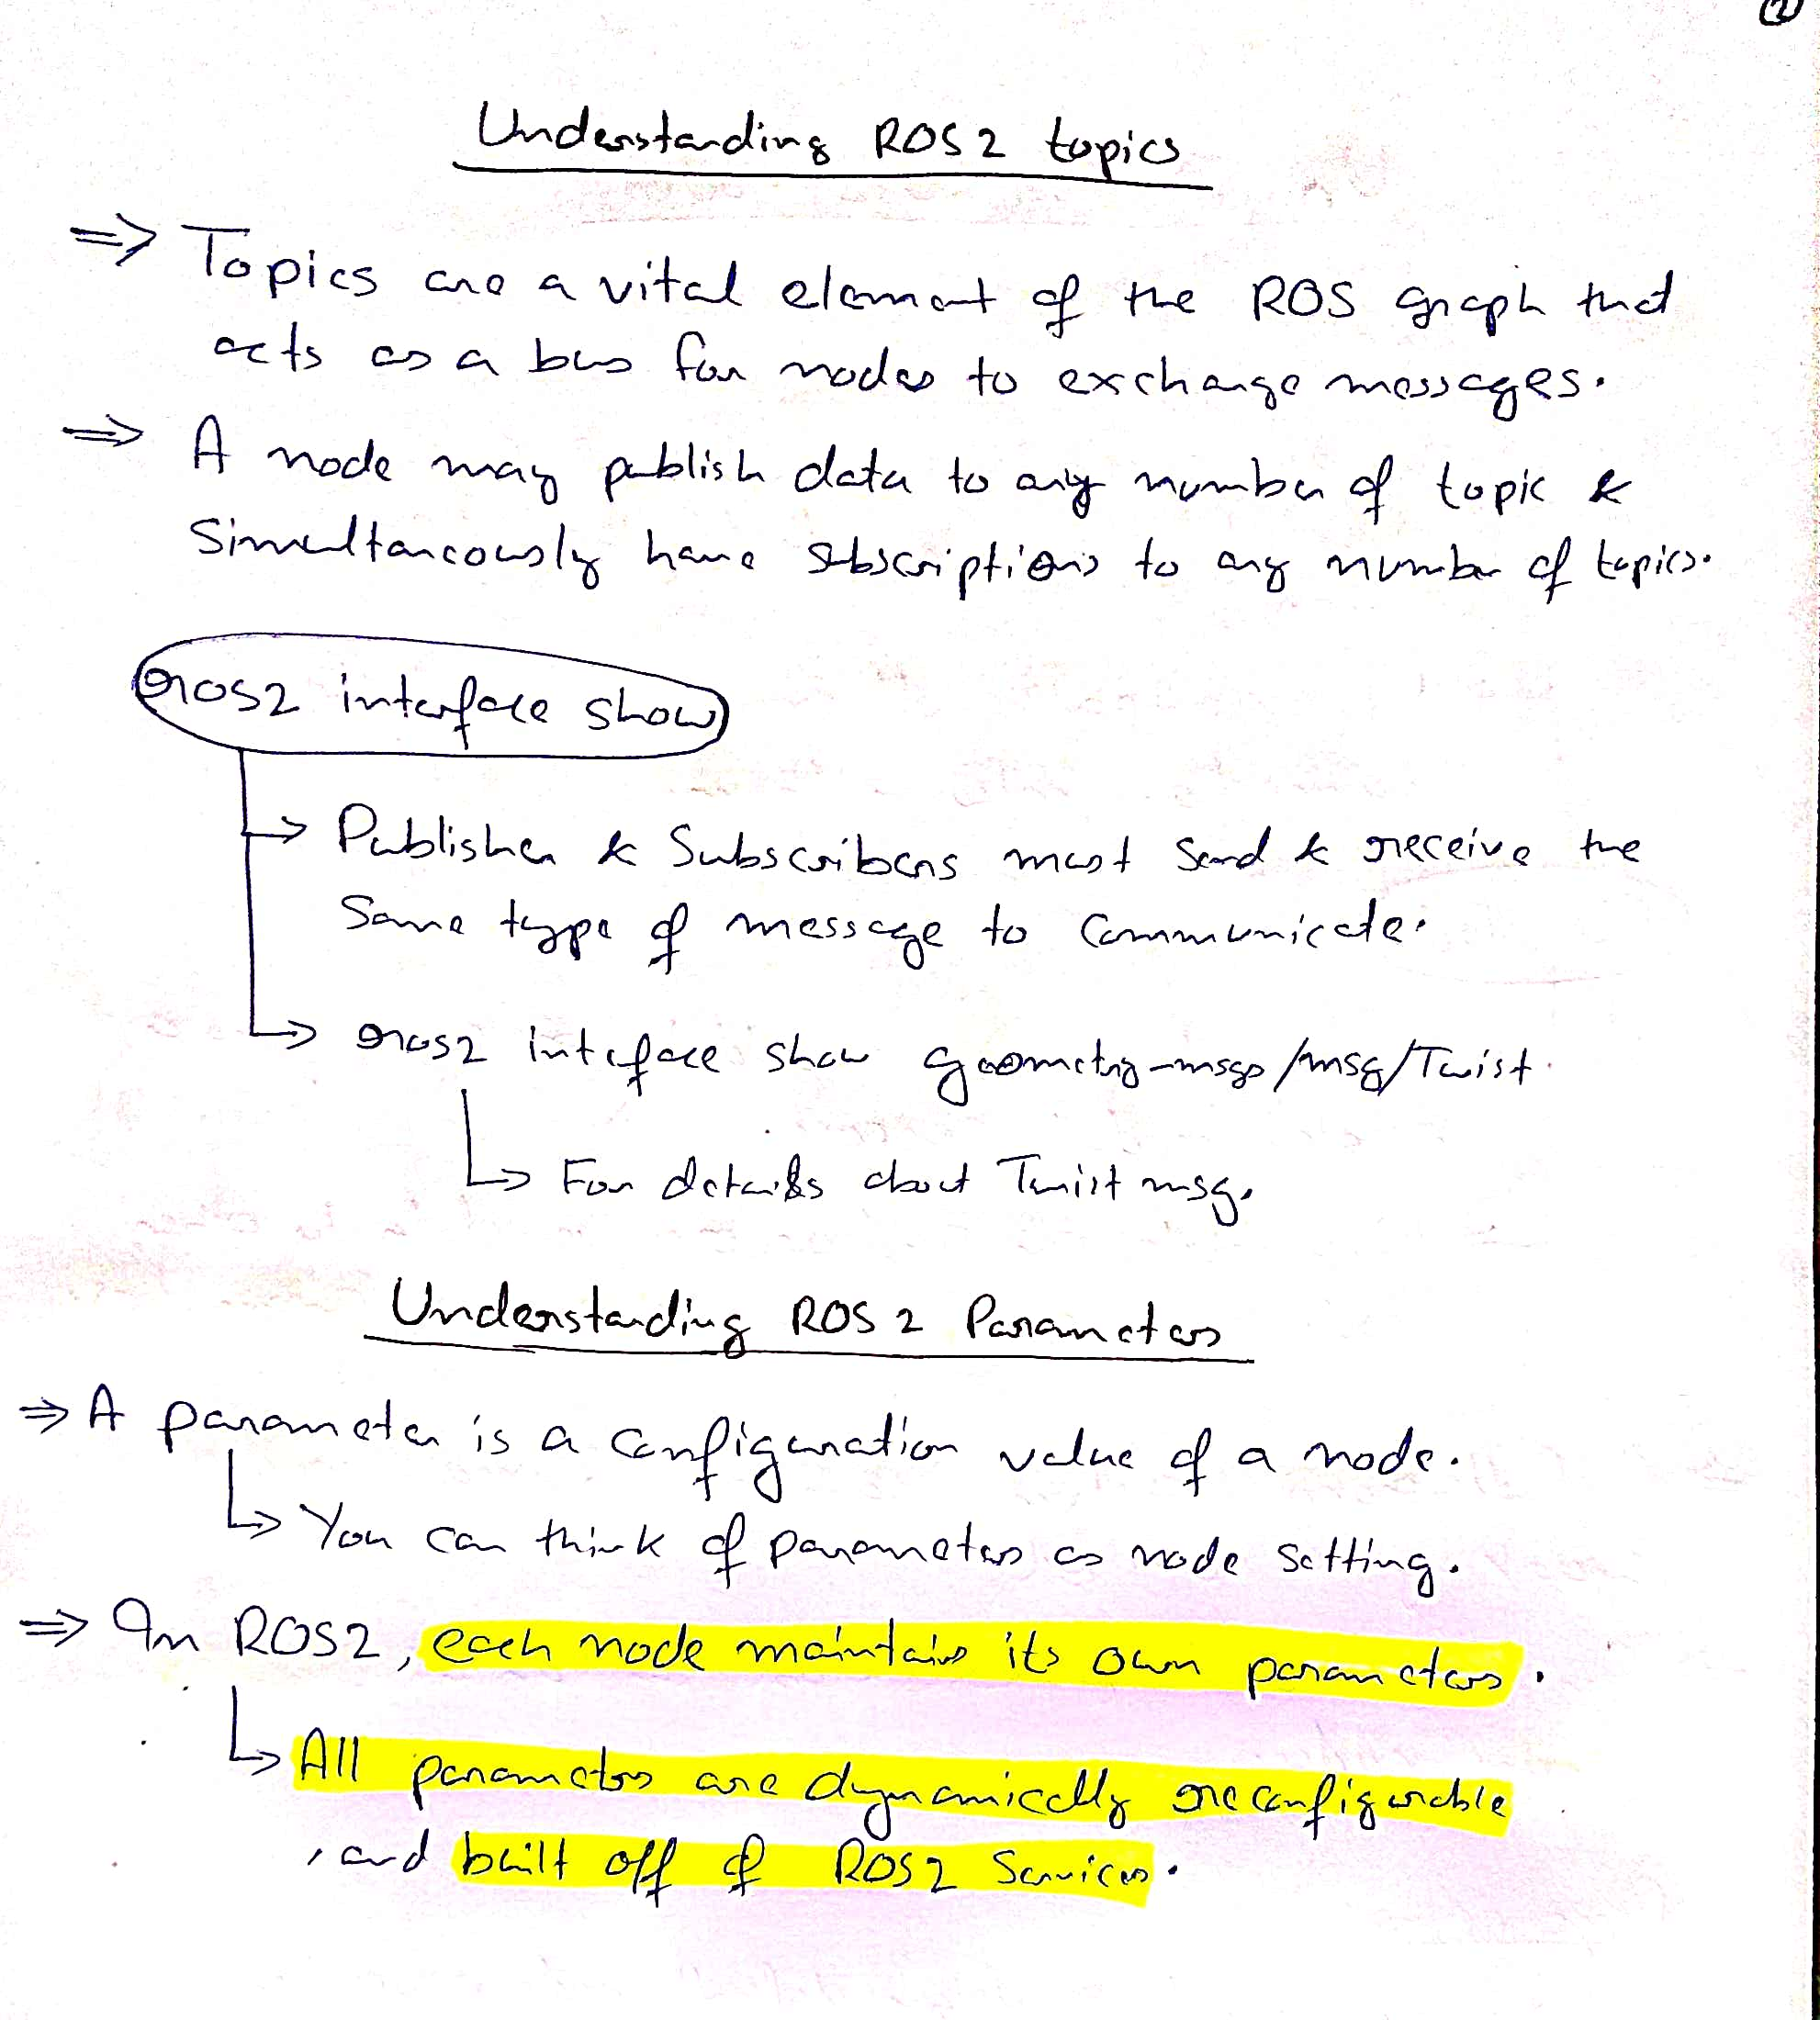 2
Understanding ROS2 topics
⇒ Topics are a vital element of the ROS graph that
acts as a bus for nodes to exchange messages.
⇒ A node may publish data to any number of topic &
Simultaneously have subscriptions to any number of topics.
ros2 interface show
→ Publisher & Subscribers must send & receive the
Same type of message to Communicate.
→ ros2 inteface show geometry-msgs/msg/Twist.
↳ For details about Twist msg.
Understanding ROS 2 Parameters
⇒ A parameter is a Configuration value of a node.
↳ You can think of parameters as node setting.
⇒ In ROS2, each node maintains its own parameters.
↳ All parameters are dynamically reconfigurable
, and built off of ROS2 Services.